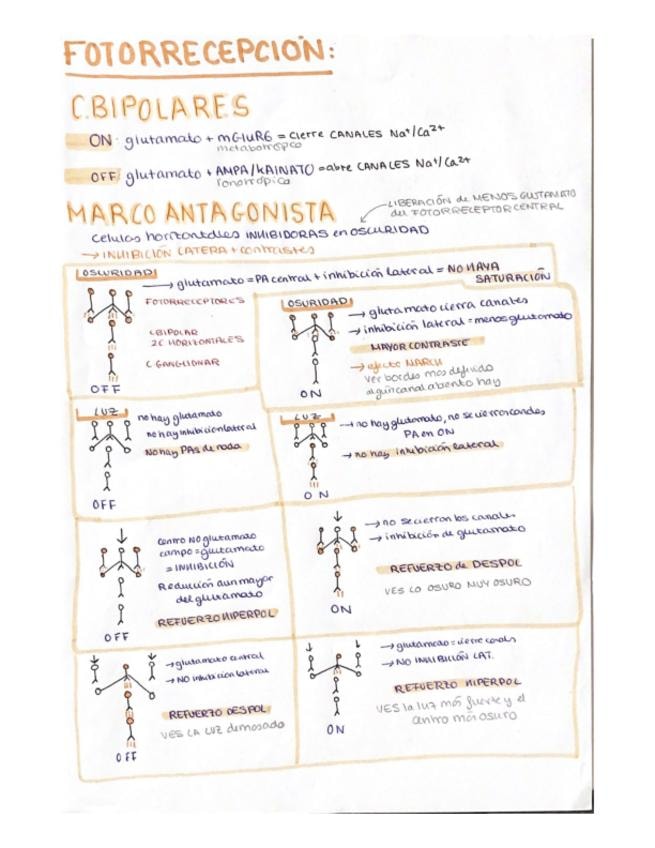 FOTORRECEPCIÓN:
C.BIPOLARES
ON: glutamato + mGluR6 = cierre CANALES Na⁺/Ca²⁺
metabotrópico
OFF: glutamato + AMPA/KAINATO = abre CANALES Na⁺/Ca²⁺
ionotrópica
MARCO ANTAGONISTA
LIBERACIÓN de MENOS GLUTAMATO
del FOTORRECEPTOR CENTRAL
células horizontales INHIBIDORAS en OSCURIDAD
→ INHIBICIÓN LATERA + contrastes
OSCURIDAD
→ glutamato = PA central + inhibición lateral = NO HAYA
SATURACIÓN
FOTORRECEPTORES
C BIPOLAR
2C HORIZONTALES
C GANGLIONAR
OFF
OSURIDAD
→ glutamato cierra canales
→ inhibición lateral = menos glutamato
MAYOR CONTRASTE
→ efecto MARCH
ver bordes más definido
algún canal abierto hay
ON
LUZ
no hay glutamato
no hay inhibición lateral
No hay PAs de nada
OFF
LUZ
→ no hay glutamato, no se cierran canales
PA en ON
→ no hay inhibición lateral
ON
centro NO glutamato
campo = glutamato
= INHIBICIÓN
Reducción aun mayor
del glutamato
REFUERZO HIPERPOL
OFF
→ no se cierran los canales
→ inhibición de glutamato
REFUERZO de DESPOL
VES LO OSURO MUY OSURO
ON
→ glutamato central
→ NO inhibición lateral
REFUERZO DESPOL
VES LA LUZ demasado
OFF
→ glutamato = cierre canals
→ NO INHIBICIÓN LAT.
REFUERZO HIPERPOL
VES la luz más fuerte y el
centro más osuro
ON